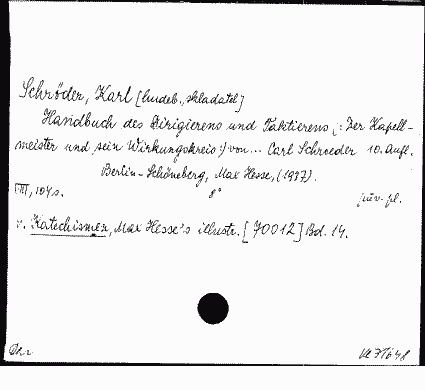 Schröder, Karl [hudeb. skladatel]
Handbuch des Dirigierens und Taktierens (: Der Kapell-
meister und sein Wirkungskreis:) von... Carl Schroeder 10. Aufl.
Berlin-Schöneberg, Max Hesse, (1927).
VIII, 104 s. 8° pův. pl.
v. Katechismen, Max Hesse's illustr. [70012] Bd. 14.